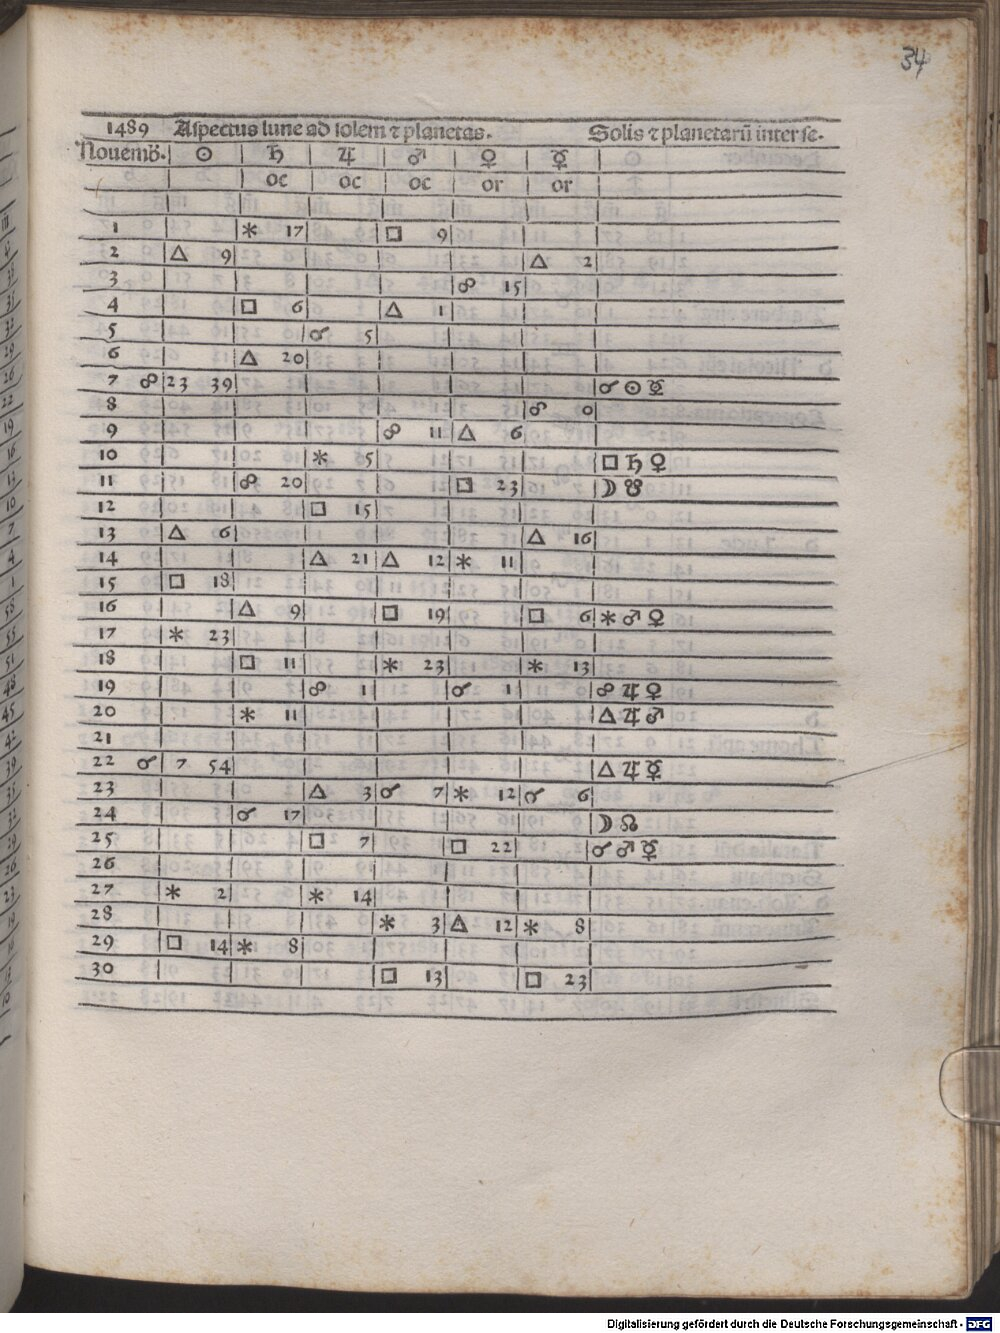 34
1489 Aspectus lune ad solem ⁊ planetas. Solis ⁊ planetarū inter se.
Nouemb. ☉ ♄ ♃ ♂ ♀ ☿
oc oc oc or or
1 ⚹ 17 □ 9
2 △ 9 △ 2
3 ☍ 15
4 □ 6 △ 1
5 ☌ 5
6 △ 20
7 ☍ 23 39 ☌ ☉ ☿
8 ☍ 0
9 ☍ 11 △ 6
10 ⚹ 5 □ ♄ ♀
11 ☍ 20 □ 23 ☽ ☋
12 □ 15
13 △ 6 △ 16
14 △ 21 △ 12 ⚹ 11
15 □ 18
16 △ 9 □ 19 □ 6 ⚹ ♂ ♀
17 ⚹ 23
18 □ 11 ⚹ 23 ⚹ 13
19 ☍ 1 ☌ 1 ☍ ♃ ♀
20 ⚹ 11 △ ♃ ♂
21
22 ☌ 7 54 △ ♃ ☿
23 △ 3 ☌ 7 ⚹ 12 ☌ 6
24 ☌ 17 ☽ ☊
25 □ 7 □ 22 ☌ ♂ ☿
26
27 ⚹ 2 ⚹ 14
28 ⚹ 3 △ 12 ⚹ 8
29 □ 14 ⚹ 8
30 □ 13 □ 23
Digitalisierung gefördert durch die Deutsche Forschungsgemeinschaft - DFG